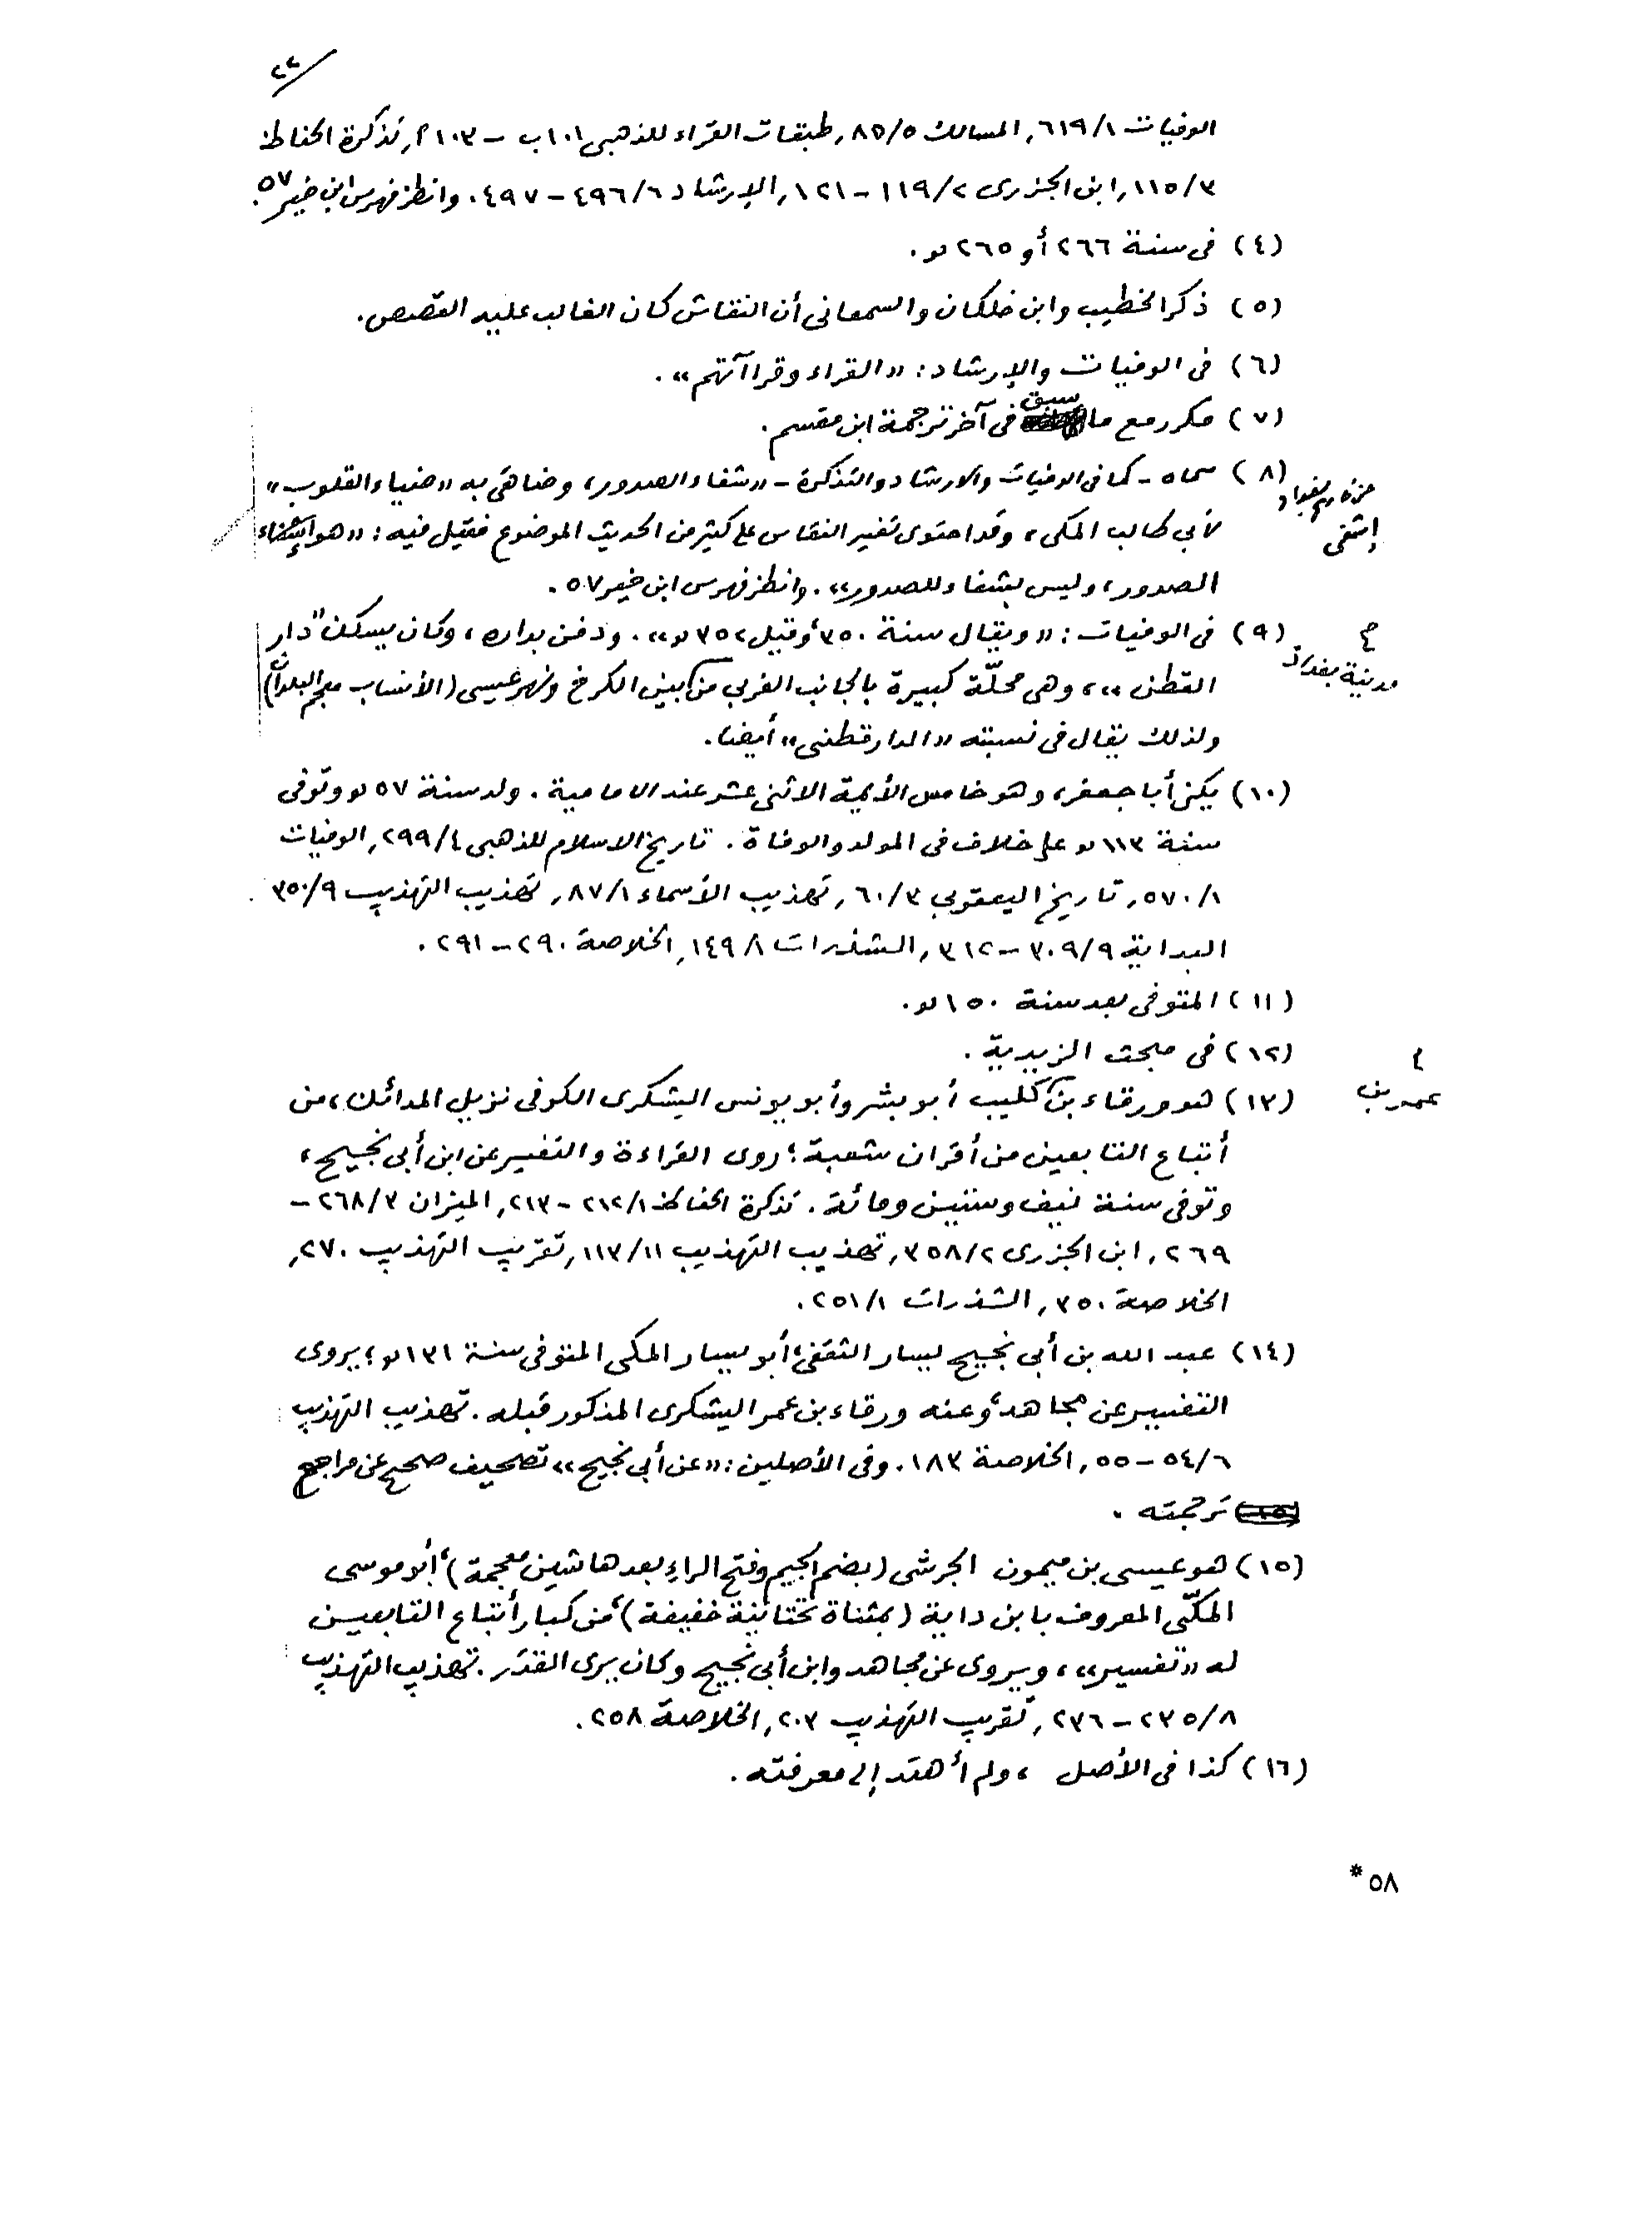 ٢٢
الوفيات ٦١٩/١, المسالك ٨٥/٥, طبقات القراء للذهبي ١٠١ب – ١٠٣أ, تذكرة الحفاظ
١١٥/٣, ابن الجزرى ١١٩/٢ – ١٢١, الإرشاد ٤٩٦/٦ – ٤٩٧. وانظر فهرس ابن خير ٥٧.
(٤) فى سنة ٢٦٦ أو ٢٦٥ هـ.
(٥) ذكر الخطيب وابن خلكان والسمعانى أن النقاش كان الغالب عليه القصص.
(٦) فى الوفيات والإرشاد: «القراء وقراآتهم».
(٧) مكرر مع ما سبق فى آخر ترجمة ابن مقسم.
(٨) سماه - كما فى الوفيات والارشاد والتذكرة - «شفاء الصدور، وضاهى به «ضياء القلوب»
لأبي طالب المكى، وقد احتوى تفسير النقاش على كثير من الحديث الموضوع فقيل فيه: «هو إشفاء
إشفى
الصدور، وليس بشفاء للصدور». وانظر فهرس ابن خير ٥٧.
(٩) فى الوفيات: «ويقال سنة ٣٥٠، وقيل ٣٥٢ هـ». ودفن بداره، وكان يسكن "دار
مدينة بغداد
القطن»، وهى محلّة كبيرة بالجانب الغربي من بين الكرخ ونهر عيسى (الأنساب معجم البلدان)
ولذلك يقال فى نسبته «الدارقطنى» أيضا.
(١٠) يكنى أبا جعفر، وهو خامس الأئمة الاثنى عشر عند الامامية. ولد سنة ٥٧ هـ وتوفى
سنة ١١٣ هـ على خلاف فى المولد والوفاة. تاريخ الاسلام للذهبى ٢٩٩/٤, الوفيات
٥٧٠/١, تاريخ اليعقوبي ٦٠/٣, تهذيب الأسماء ٨٧/١, تهذيب التهذيب ٣٥٠/٩
البداية ٣٠٩/٩ – ٣١٢, الشذرات ١٤٩/١, الخلاصة ٢٩٠ – ٢٩١.
(١١) المتوفى بعد سنة ١٥٠ هـ.
(١٢) فى مبحث الزيدية.
(١٣) هو ورقاء بن كليب أبو بشر وأبو يونس اليشكرى الكوفى نزيل المدائن، من
عمر بن
أتباع التابعين من أقران شعبة؛ روى القراءة والتفسير عن ابن أبى نجيح،
وتوفى سنة نيف وستين ومائة. تذكرة الحفاظ ٢١٢/١ – ٢١٣, الميزان ٢٦٨/٣ –
٢٦٩, ابن الجزرى ٣٥٨/٢, تهذيب التهذيب ١١٣/١١, تقريب التهذيب ٢٧٠,
الخلاصة ٣٥٠, الشذرات ٢٥١/١.
(١٤) عبد الله بن أبى نجيح يسار الثقفى، أبو يسار المكى المتوفى سنة ١٣١ هـ؛ يروى
التفسير عن مجاهد، وعنه ورقاء بن عمر اليشكرى المذكور قبله. تهذيب التهذيب
٥٤/٦ – ٥٥, الخلاصة ١٨٣. وفى الأصلين: «عن أبى نجيح» تصحيف صحح عن مراجع
ترجمته.
(١٥) هو عيسى بن ميمون الجرشى (بضم الجيم وفتح الراء بعدها شين معجمة)، أبو موسى
المكّى المعروف بابن داية (بمثناة تحتانية خفيفة)، من كبار أتباع التابعين
له «تفسير»، ويروى عن مجاهد وابن أبى نجيح وكان يرى القدَر. تهذيب التهذيب
٢٣٥/٨ – ٢٣٦, تقريب التهذيب ٢٠٣, الخلاصة ٢٥٨.
(١٦) كذا فى الأصل، ولم أهتد إلى معرفته.
٥٨ *